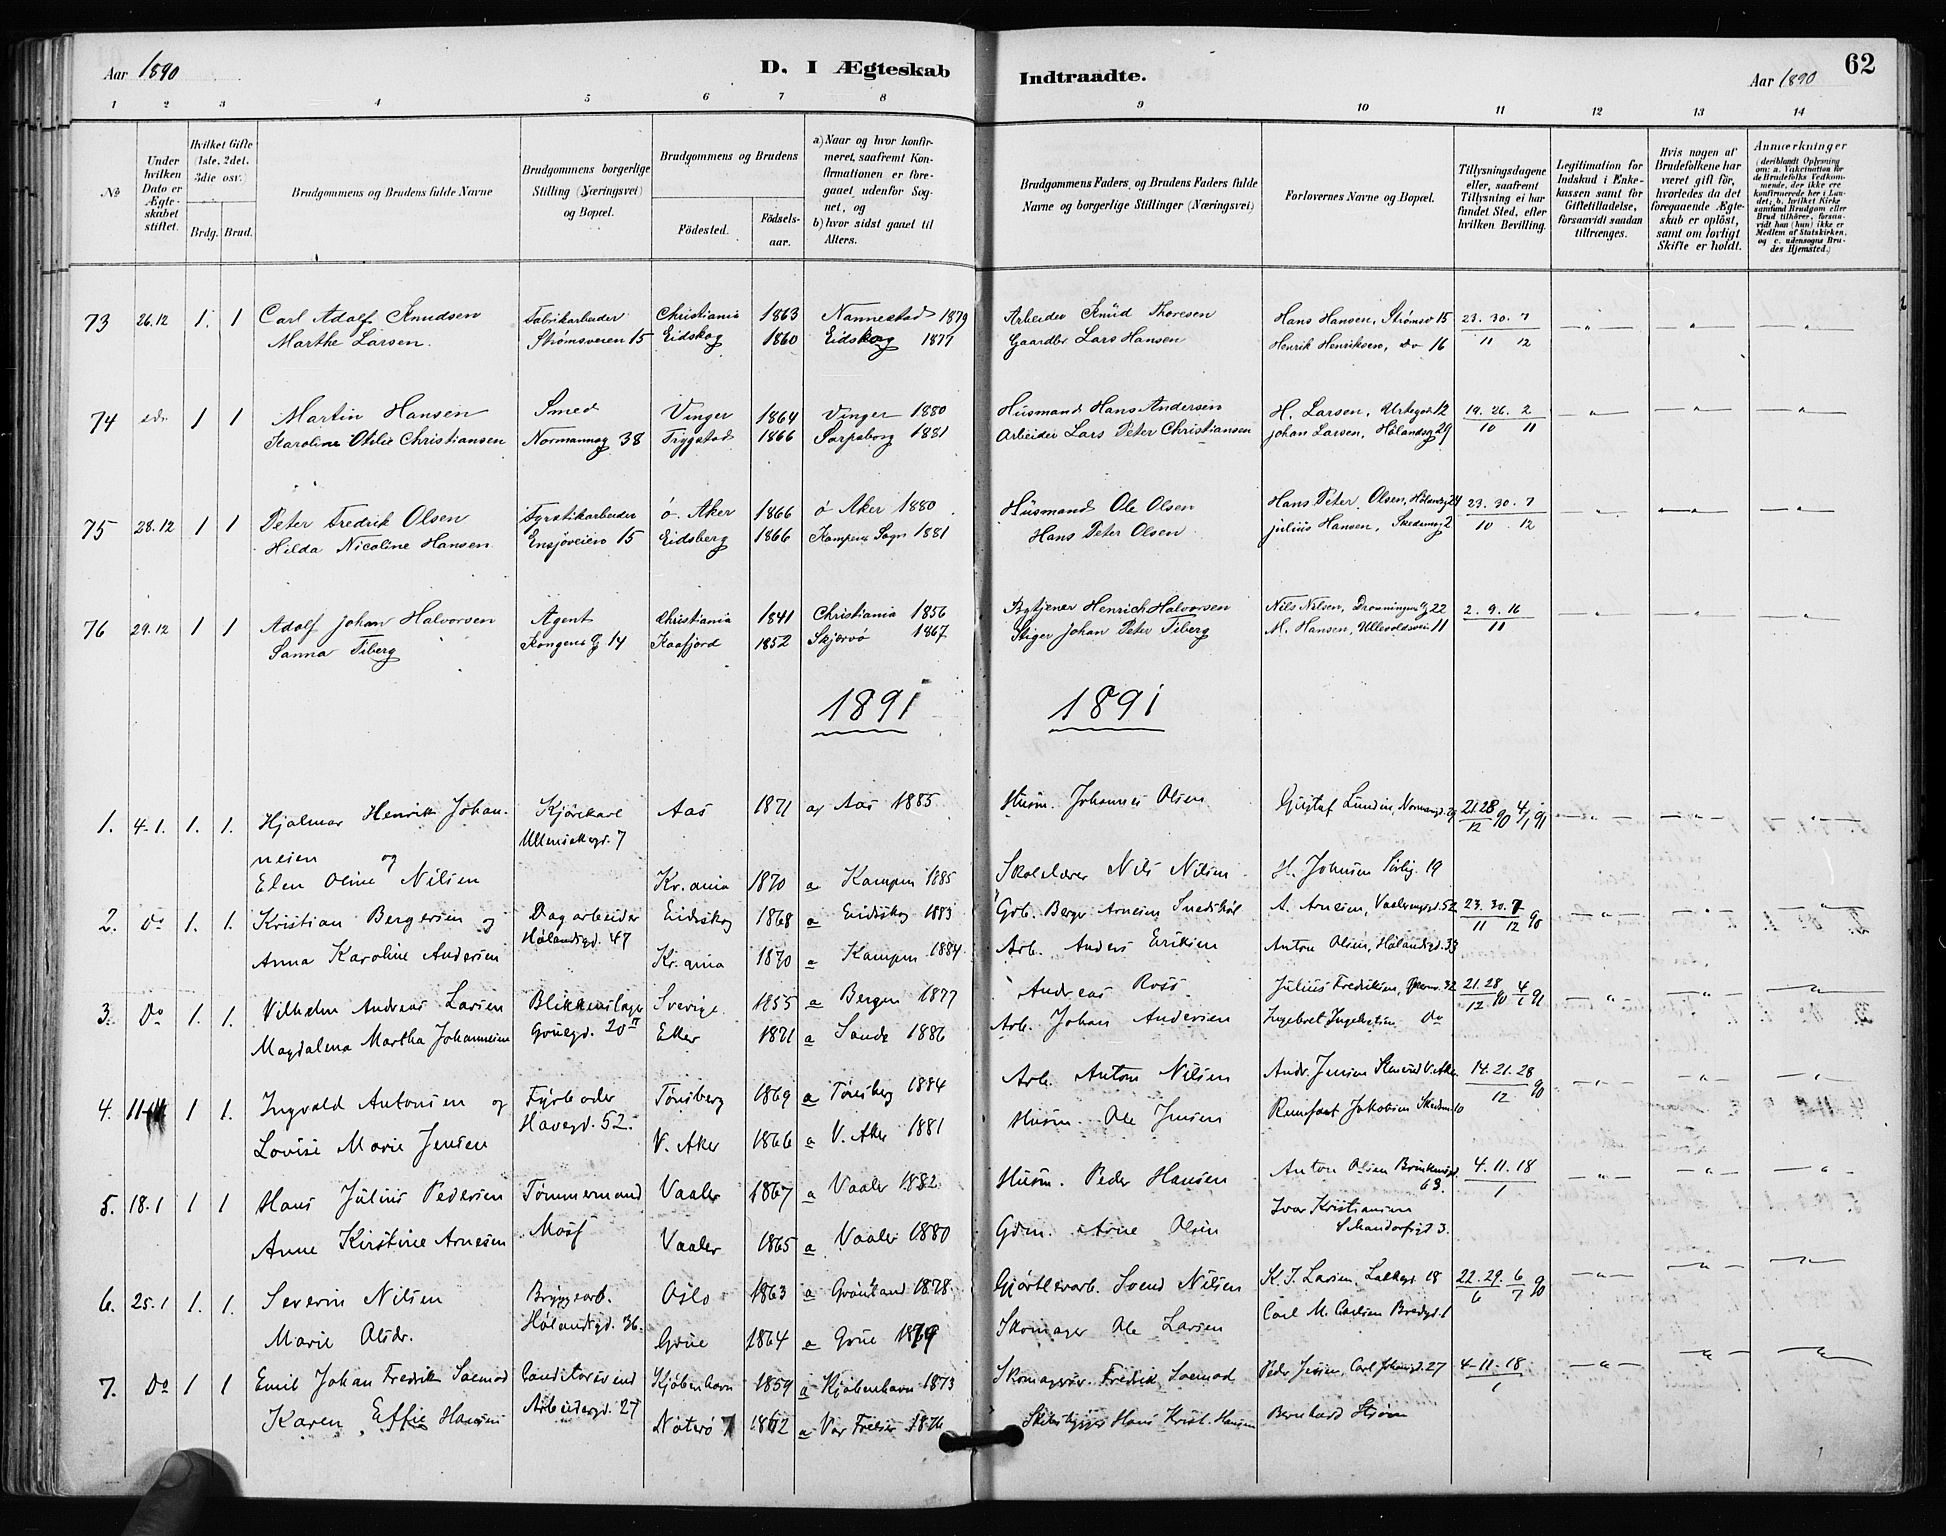 Aar 1890
D. I Ægteskab
Indtraadte.
Aar 1890
62
1 2 3 4 5 6 7 8 9 10 11 12 13 14
No
Under hvilken Dato er Ægteskabet stiftet.
Hvilket Gifte (1ste, 2det, 3die osv.)
Brdg. Brud.
Brudgommens og Brudens fulde Navne
Brudgommens borgerlige Stilling (Næringsvei) og Bopæl.
Brudgommens og Brudens
Fødested.
Fødsels-aar.
a) Naar og hvor konfirmeret, saafremt Konfirmationen er foregaaet udenfor Sognet, og
b) hvor sidst gaaet til Alters.
Brudgommens Faders og Brudens Faders fulde Navne og borgerlige Stillinger (Næringsvei)
Forlovernes Navne og Bopæl.
Tillysningsdagene eller, saafremt Tillysning ei har fundet Sted, efter hvilken Bevilling.
Legitimation for Indskud i Enkekassen samt for Giftetilladelse, forsaavidt saadan tiltrænges.
Hvis nogen af Brudefolkene har været gift før, hvorledes da det foregaaende Ægteskab er opløst, samt om lovligt Skifte er holdt.
Anmærkninger
(deriblandt Oplysning om: a. Vakcination for de Brudefolks Vedkommende, der ikke ere konfirmerede her i Landet; b. hvilket Kirkesamfund Brudgom eller Brud tilhører, forsaavidt han (hun) ikke er Medlem af Statskirken, og c. udensogns Brudes Hjemsted.)
73 26.12 1. 1 Carl Adolf Knudsen Fabrikarbeider Christiania 1863 Nannestad 1879 Arbeider Knud Thoresen Hans Hansen, Strømsv 15 23. 30. 7
Marthe Larsen. Strømsveien 15 Eidskog 1860 Eidskog 1877 Gaardbr Lars Hansen Henrik Henriksen, do 16 11 12
74 1 1 Martin Hansen Smed Vinger 1864 Vinger 1880 Husmand Hans Andersen H. Larsen, Urtegd 12 19. 26. 2
Karoline Otilie Christiansen Normannsg 38 Trygstad 1866 Sarpsborg 1881 Arbeider Lars Peter Christiansen Johan Larsen, Hølandsg 29 10 11
75 28.12 1 1 Peter Fredrik Olsen Fyrstikarbeider Ø. Aker 1866 Ø Aker 1880 Husmand Ole Olsen Hans Peter Olsen, Hølandsg 24 23. 30. 7
Hilda Nicoline Hansen Ensjøveien 15 Eidsberg 1866 Kampens Sogn 1881 Hans Peter Olsen Julius Hansen, Skedsmog 2 10 12
76 29.12 1 1 Adolf Johan Halvorsen Agent Christiania 1841 Christiania 1856 Henrich Halvorsen Nils Nilsen, Dronningens G 22 2. 9. 16
Sanna Tiberg Kongens G 14 Kaafjord 1852 Skjervø 1867 Stiger Johan Peter Tiberg M. Hansen, Ullevoldsvei 11 11
1891 1891
1. 4-1. 1. 1. Hjalmar Henrik Johan- Kjørekarl Aas 1871 a Aas 1885 Husm. Johannes Olsen Gustaf Lundin, Normansgd. 21 28 4/1 91
nesen og Ullensakergd. 7 12 90
Elen Oline Nilsen Kr.ania 1870 a Kampen 1885 Skolelærer Nils Nilsen H. Johnsen Sørlig. 19
2. Do 1. 1. Kristian Bergersen og Dagarbeider Eidskog 1868 a Eidskog 1883 Grb. Berger Arnesen A. Arnesen, Vaalerengd. 52 23. 30. 7
Hølandsgd. 47 11 12 90
Anna Karoline Andersen Kr.ania 1870 a Kampen 1884 Arb. Anders Eriksen Anton Olsen, Hølandsgd. 33
3. Do 1. 1. Vilhelm Andreas Larsen Blikkenslager Sverige 1855 a Bergen 1877 Andreas Ross. Julius Fredriksen, 32 21.28 4
Magdalena Martha Johannesen Gruegd. 20 II Eker 1871 a Sande 1886 Arb. Johan Andersen Ingebret Ingebretsen Do 12 90 1 91
4. 11-1 1 1. Ingvald Antonsen og Fyrbøder Tønsberg 1869 a Tønsberg 1884 Arb. Anton Nilsen Andr. Jensen V. Aker 14. 21. 28
Lovise Marie Jensen Havegd. 52. V. Aker 1866 a V. Aker 1881 Husm. Ole Jensen Jakobsen 10 12 90
5. 18.1 1 1 Hans Julius Pedersen Tømmermand Vaaler 1867 a Vaaler 1882 Husm. Peder Hansen Anton Olsen 63. 4. 11. 18
Anne Kirstine Arnesen Moss Vaaler 1865 a Vaaler 1880 Gdm. Arne Olsen Ivar Kristiansen Schandorfsgd 3. 1
6. 25.1 1. 1. Severin Nilsen Bryggearb. Oslo 1863 a Grønland 1878 Gjørtlerarb. Svend Nilsen K. J. Larsen, Lakkegd 18 22. 29. 6
Marie Olsdr. Hølandsgd. 36. Grue 1864 a Grue 1879 Skomager Ole Larsen Carl M. Carlsen Bredgd. 1 6 7 90
7. Do 1 1 Emil Johan Fredrik Soemod Conditorsvend Kjøbenhavn 1859 a Kjøbenhavn 1873 Fredrik Soemod Peder Jensen, Carl Johansgd. 27 4-11-18
Karen Effie Hansen Arbeidergd. 27 Nøterø 1862 a Vor Frelser 1876 Hans Krist. Hansen Bernhard Strøm 1